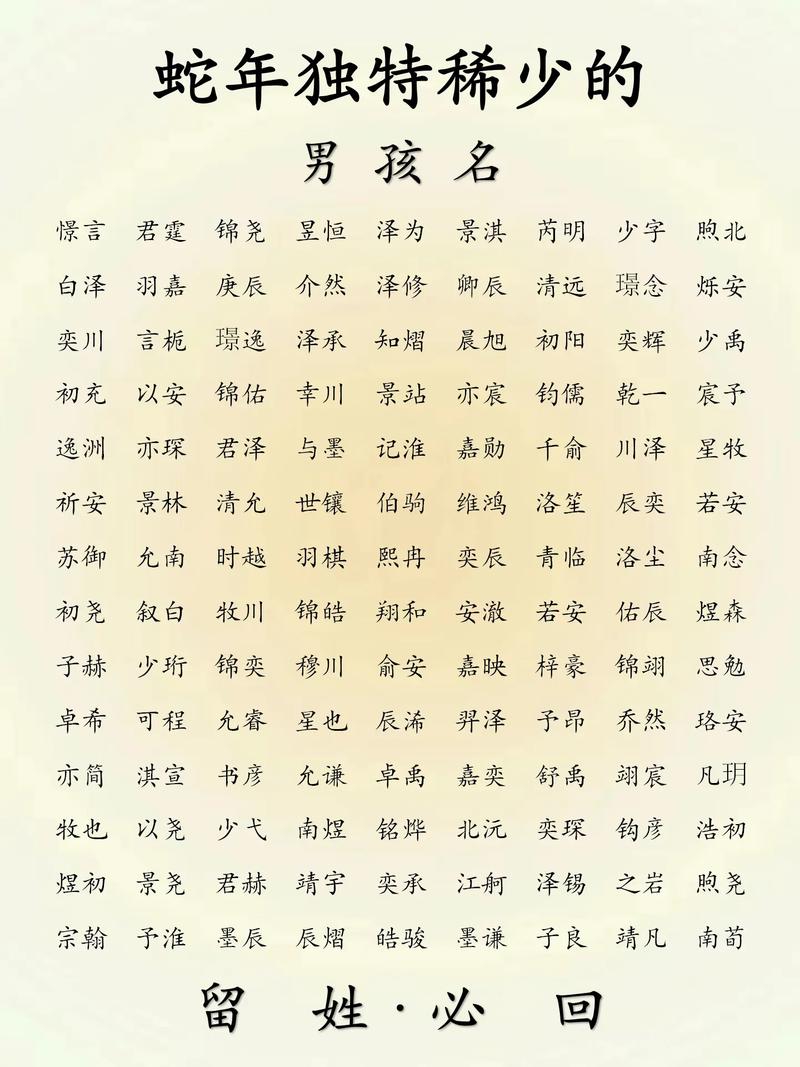 蛇年独特稀少的
男孩名
憬言 君霆 锦尧 昱恒 泽为 景淇 芮明 少字 煦北
白泽 羽嘉 庚辰 介然 泽修 卿辰 清远 璟念 烁安
奕川 言栀 璟逸 泽承 知熠 晨旭 初阳 奕辉 少禹
初充 以安 锦佑 幸川 景站 亦宸 钧儒 乾一 宸予
逸洲 亦琛 君泽 与墨 记淮 嘉勋 千俞 川泽 星牧
祈安 景林 清允 世镶 伯驹 维鸿 洛笙 辰奕 若安
苏御 允南 时越 羽棋 熙冉 奕辰 青临 洛尘 南念
初尧 叙白 牧川 锦皓 翔和 安澈 若安 佑辰 煜森
子赫 少珩 锦奕 穆川 俞安 嘉映 梓豪 锦翊 思勉
卓希 可程 允睿 星也 辰浠 羿泽 予昂 乔然 珞安
亦简 淇宣 书彦 允谦 卓禹 嘉奕 舒禹 翊宸 凡玥
牧也 以尧 少弋 南煜 铭烨 北沅 奕琛 钩彦 浩初
煜初 景尧 君赫 靖宇 奕承 江舸 泽锡 之岩 煦尧
宗翰 予淮 墨辰 辰熠 皓骏 墨谦 子良 靖凡 南荀
留 姓·必 回